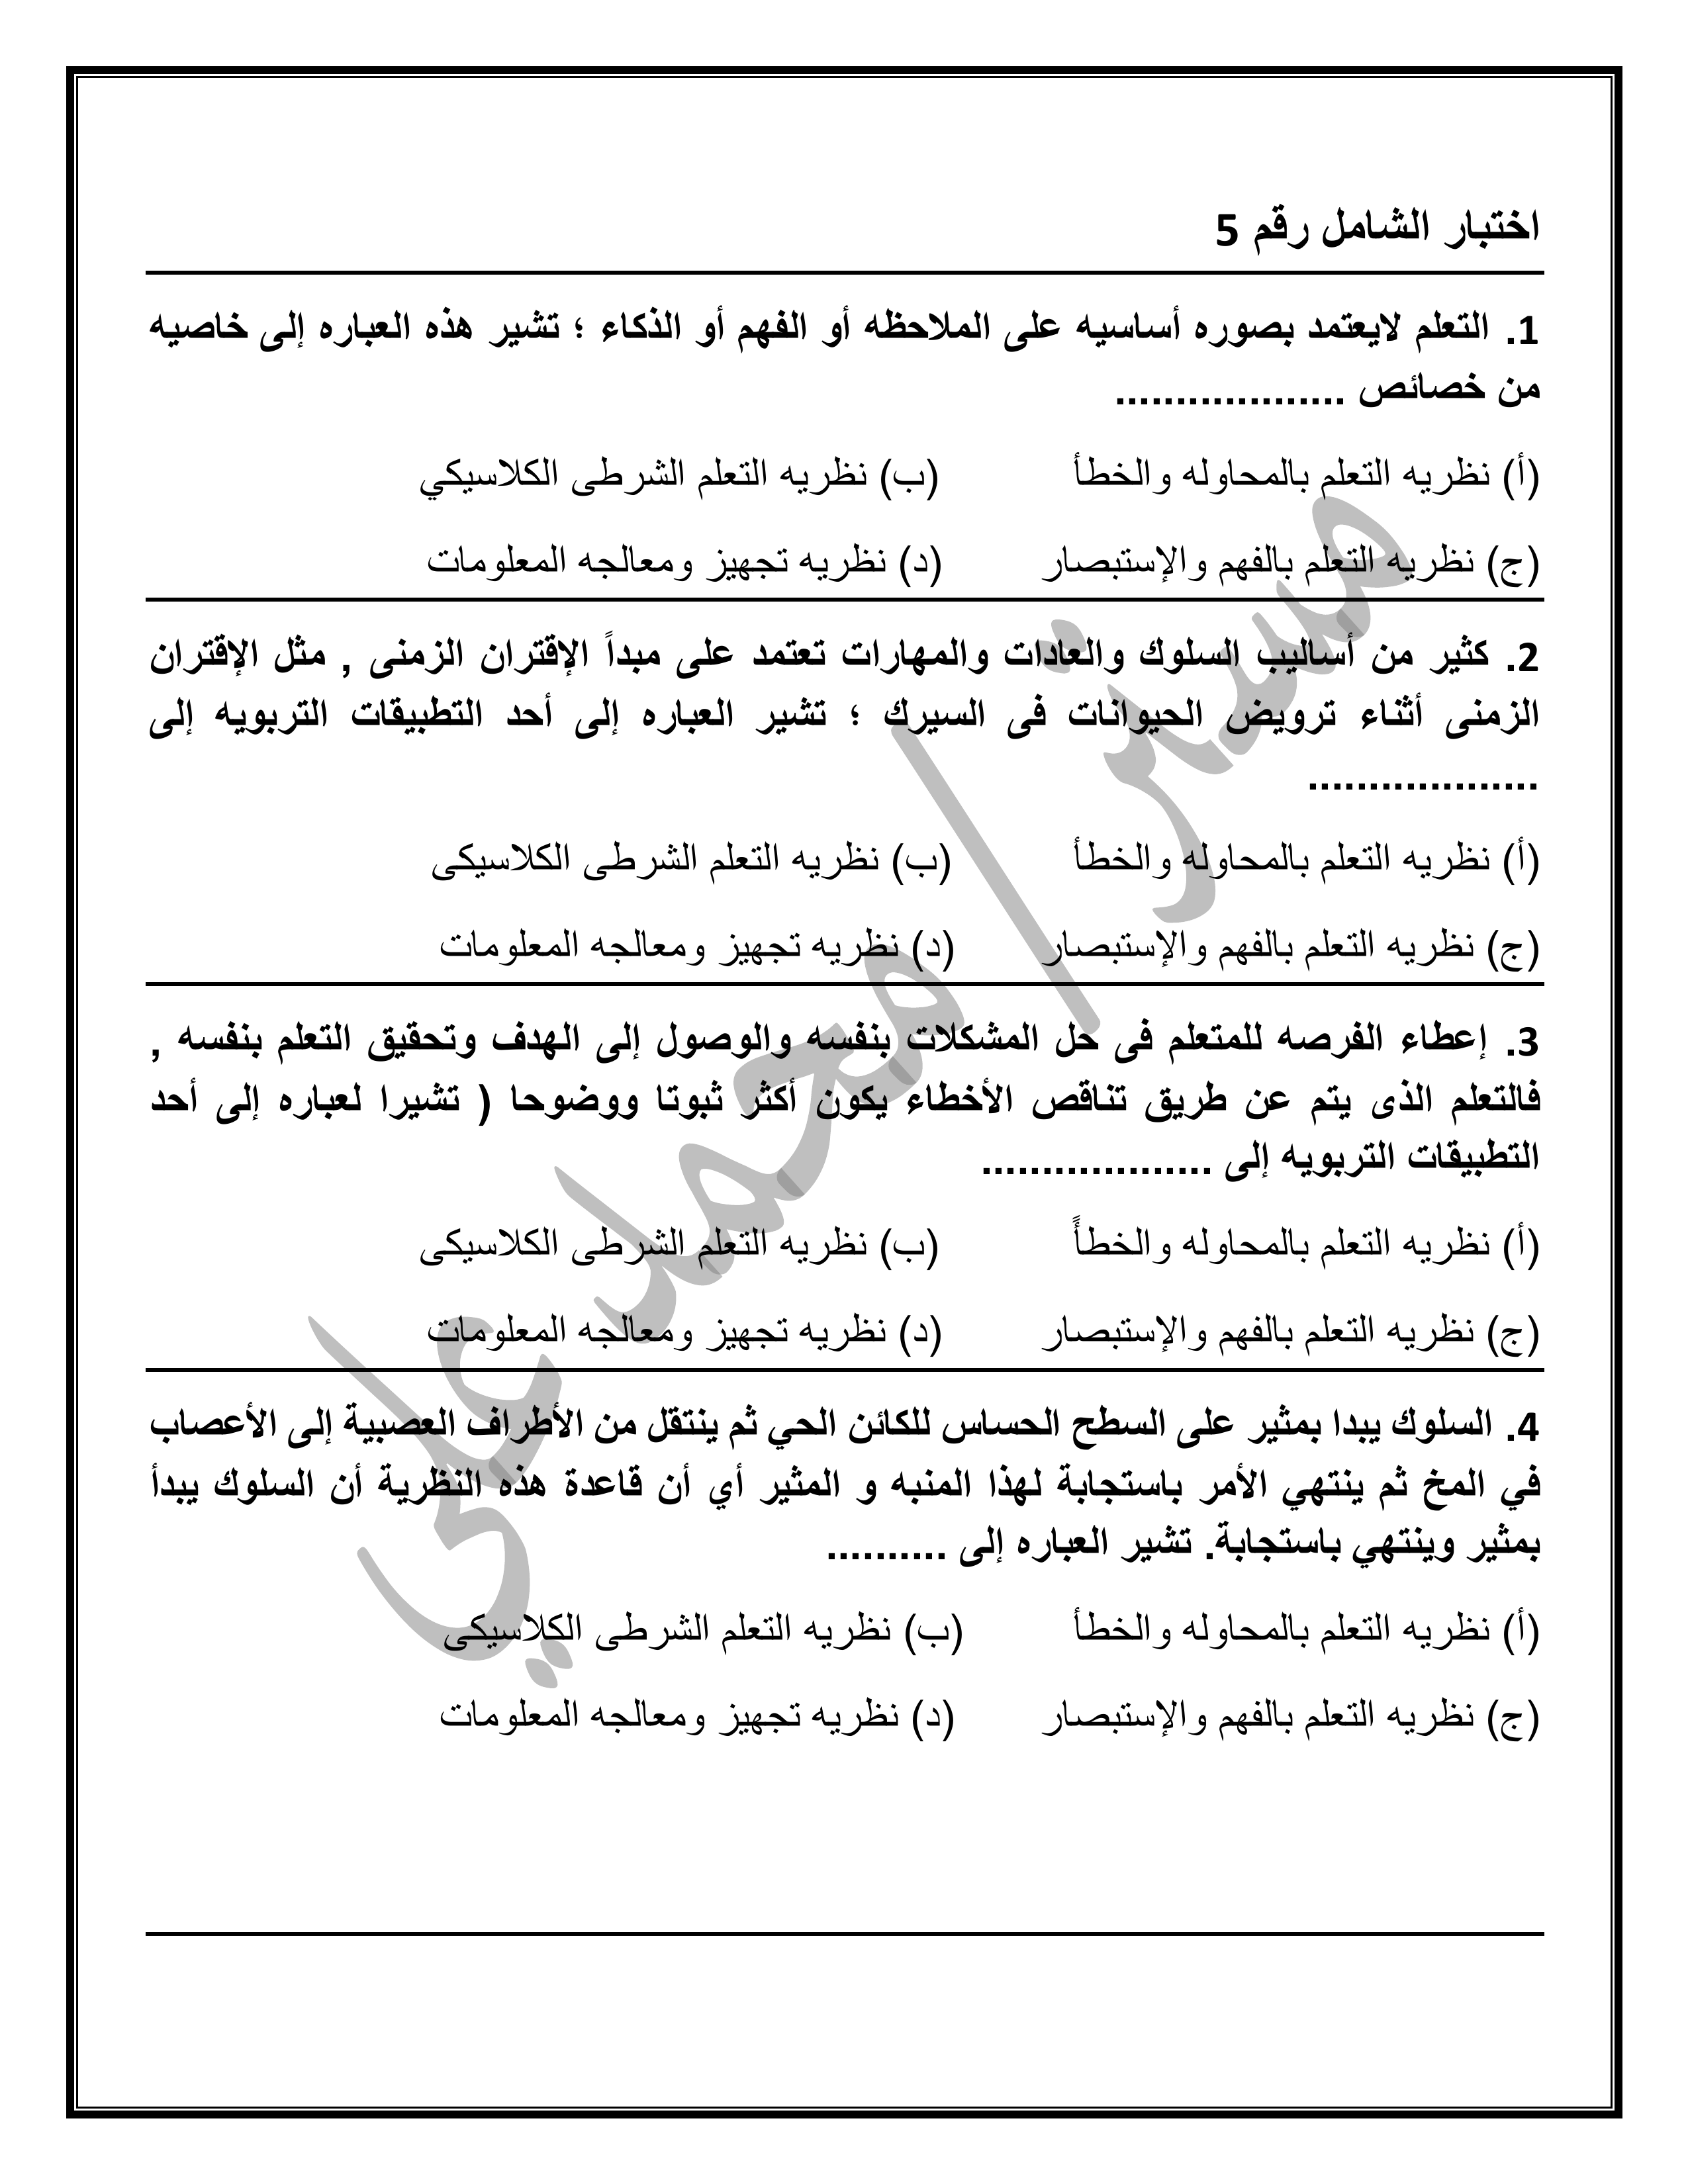 اختبار الشامل رقم 5
1. التعلم لايعتمد بصوره أساسيه على الملاحظه أو الفهم أو الذكاء ؛ تشير هذه العباره إلى خاصيه
من خصائص ...................
(أ) نظريه التعلم بالمحاوله والخطأ (ب) نظريه التعلم الشرطى الكلاسيكي
(ج) نظريه التعلم بالفهم والإستبصار (د) نظريه تجهيز ومعالجه المعلومات
2. كثير من أساليب السلوك والعادات والمهارات تعتمد على مبدأ الإقتران الزمنى , مثل الإقتران
الزمنى أثناء ترويض الحيوانات فى السيرك ؛ تشير العباره إلى أحد التطبيقات التربويه إلى
...................
(أ) نظريه التعلم بالمحاوله والخطأ (ب) نظريه التعلم الشرطى الكلاسيكى
(ج) نظريه التعلم بالفهم والإستبصار (د) نظريه تجهيز ومعالجه المعلومات
3. إعطاء الفرصه للمتعلم فى حل المشكلات بنفسه والوصول إلى الهدف وتحقيق التعلم بنفسه ,
فالتعلم الذى يتم عن طريق تناقص الأخطاء يكون أكثر ثبوتا ووضوحا ( تشيرا لعباره إلى أحد
التطبيقات التربويه إلى ...................
(أ) نظريه التعلم بالمحاوله والخطأً (ب) نظريه التعلم الشرطى الكلاسيكى
(ج) نظريه التعلم بالفهم والإستبصار (د) نظريه تجهيز ومعالجه المعلومات
4. السلوك يبدا بمثير على السطح الحساس للكائن الحي ثم ينتقل من الأطراف العصبية إلى الأعصاب
في المخ ثم ينتهي الأمر باستجابة لهذا المنبه و المثير أي أن قاعدة هذه النظرية أن السلوك يبدأ
بمثير وينتهي باستجابة. تشير العباره إلى ..........
(أ) نظريه التعلم بالمحاوله والخطأ (ب) نظريه التعلم الشرطى الكلاسيكى
(ج) نظريه التعلم بالفهم والإستبصار (د) نظريه تجهيز ومعالجه المعلومات
مستر/ محمد علي